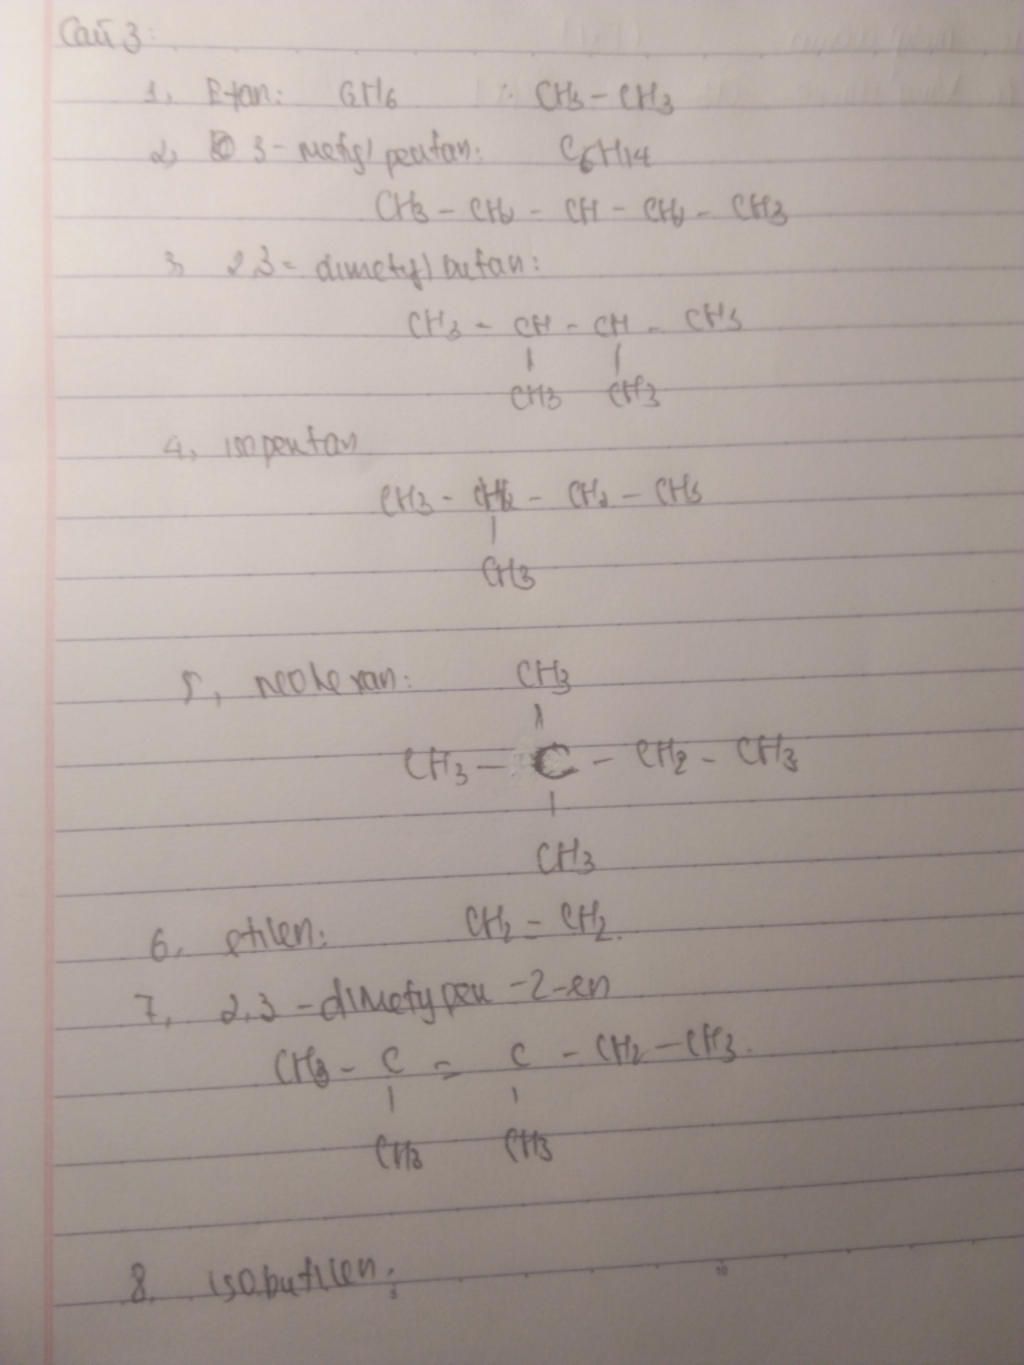 Câu 3:
1, Etan: C2H6 CH3 - CH3
2, 3 - metyl pentan: C6H14
CH3 - CH2 - CH - CH2 - CH3
3, 2,3 - dimetyl butan:
CH3 - CH - CH - CH3
CH3 CH3
4, isopentan
CH3 - CH2 - CH2 - CH3
CH3
5, neohexan: CH3
CH3 - C - CH2 - CH3
CH3
6, etilen: CH2 = CH2.
7, 2,3 - dimetypen - 2 - en
CH3 - C = C - CH2 - CH3.
CH3 CH3
8. isobutilen: